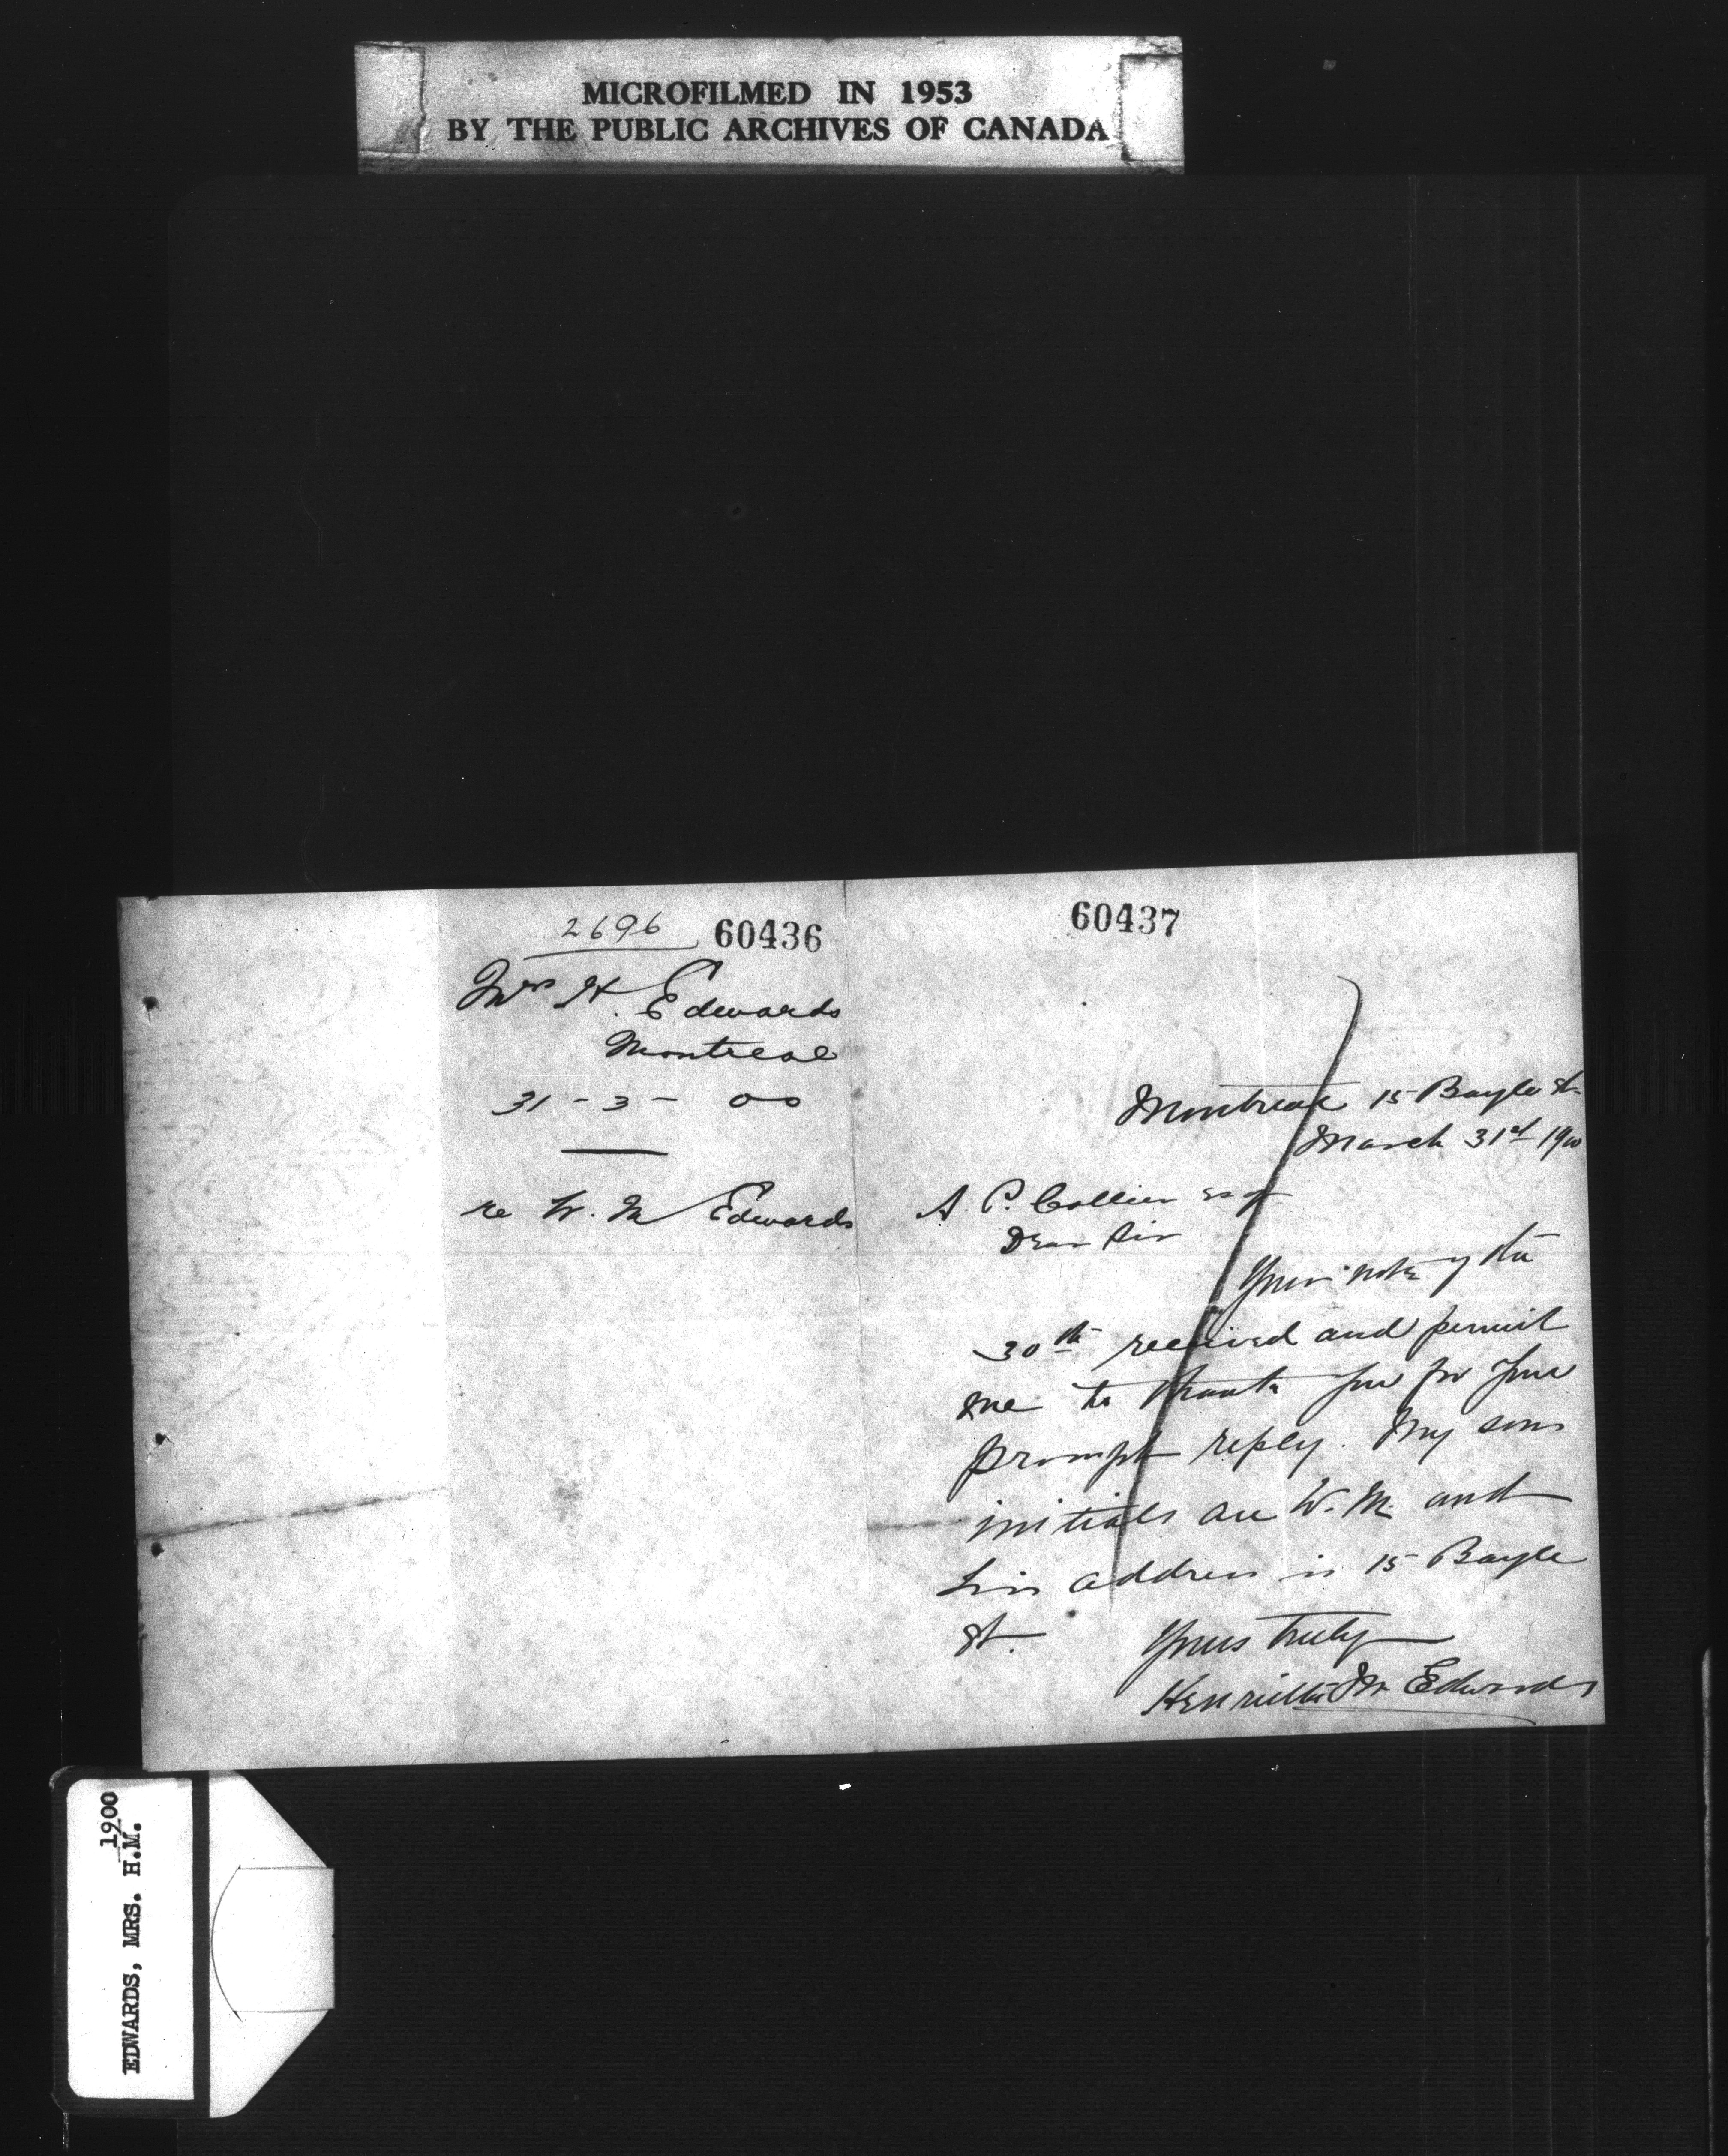 MICROFILMED IN 1953
BY THE PUBLIC ARCHIVES OF CANADA
2696 60436
Mrs H. Edwards
Montreal
31 - 3 - 00
re W. M Edwards
60437
Montreal 15 Bayle St.
March 31st 1900
A. P. Collier Esq
Dear Sir
Your note of the
30th received and permit
me to thank you for your
prompt reply. My sons
initials are W. M. and
his address is 15 Bayle
St.
Yours truly
Henrietta M Edwards
1900
EDWARDS, MRS. H.M.